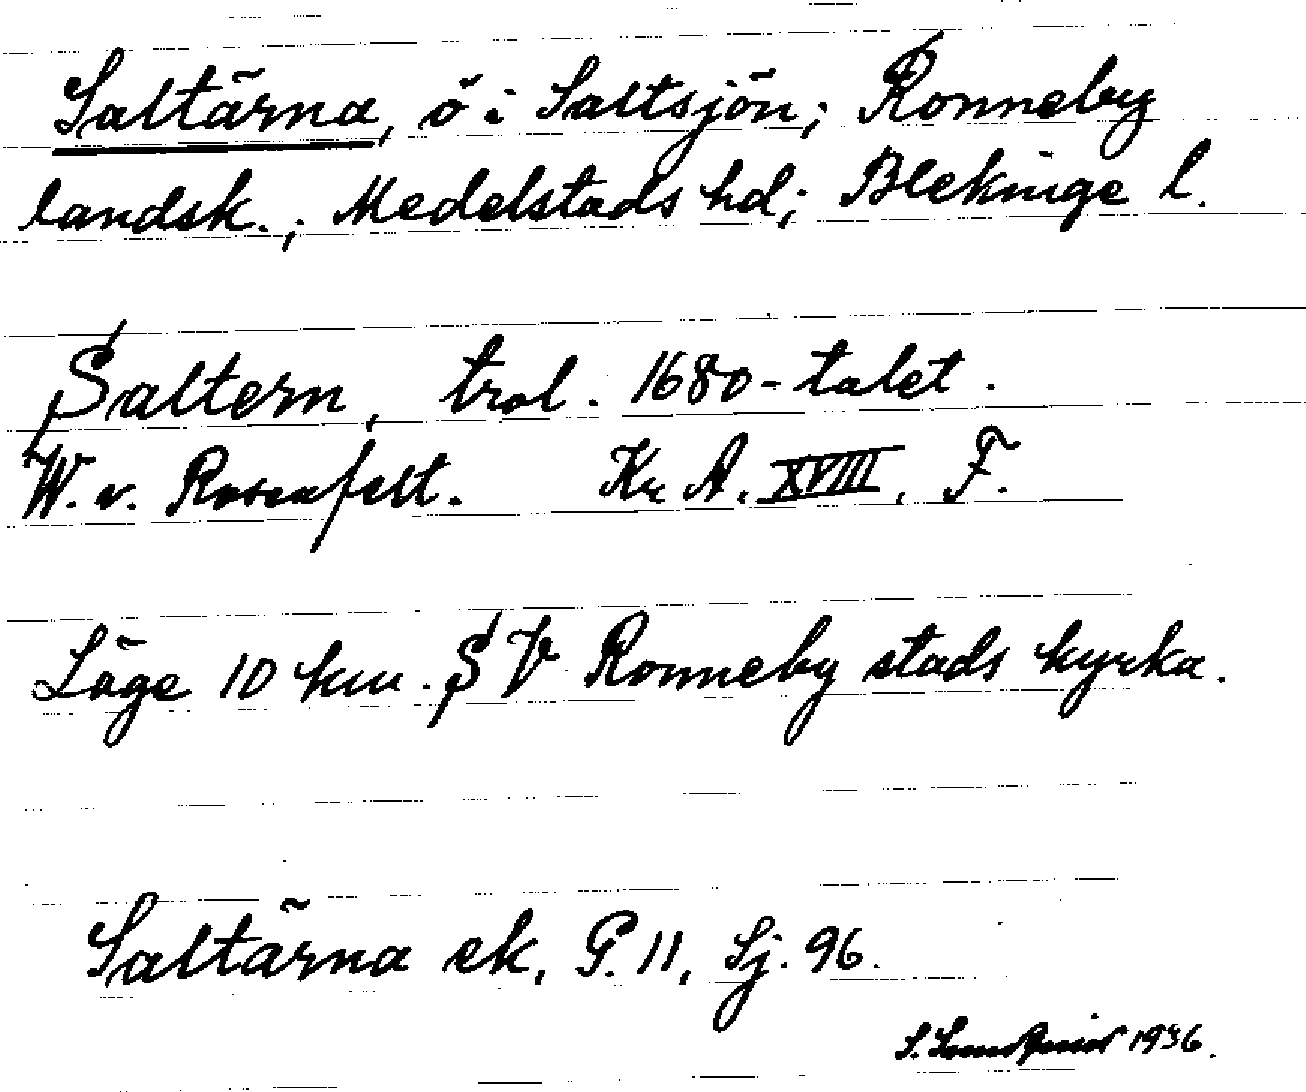 Saltärna, ö i Saltsjön; Ronneby
landsk.; Medelstads hd; Blekinge l.
Saltern, trol. 1680-talet.
W. v. Rosenfelt. Kr A. XVIII, F.
Läge 10 km. SV Ronneby stads kyrka.
Saltärna ek, G. 11, Sj. 96.
S. 1936.